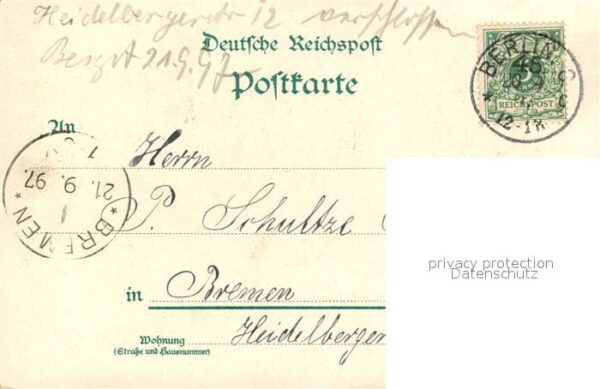 Heidelbergerstr 12 verschlossen
Deutsche Reichspost
21.9.97
Postkarte
BERLIN C
45
5
REICHSPOST
12-1N
An
Herrn
P. Schultze
21. 9. 97.
BREMEN
1
privacy protection
Datenschutz
in Bremen
Wohnung
(Straße und Hausnummer)
Heidelberger